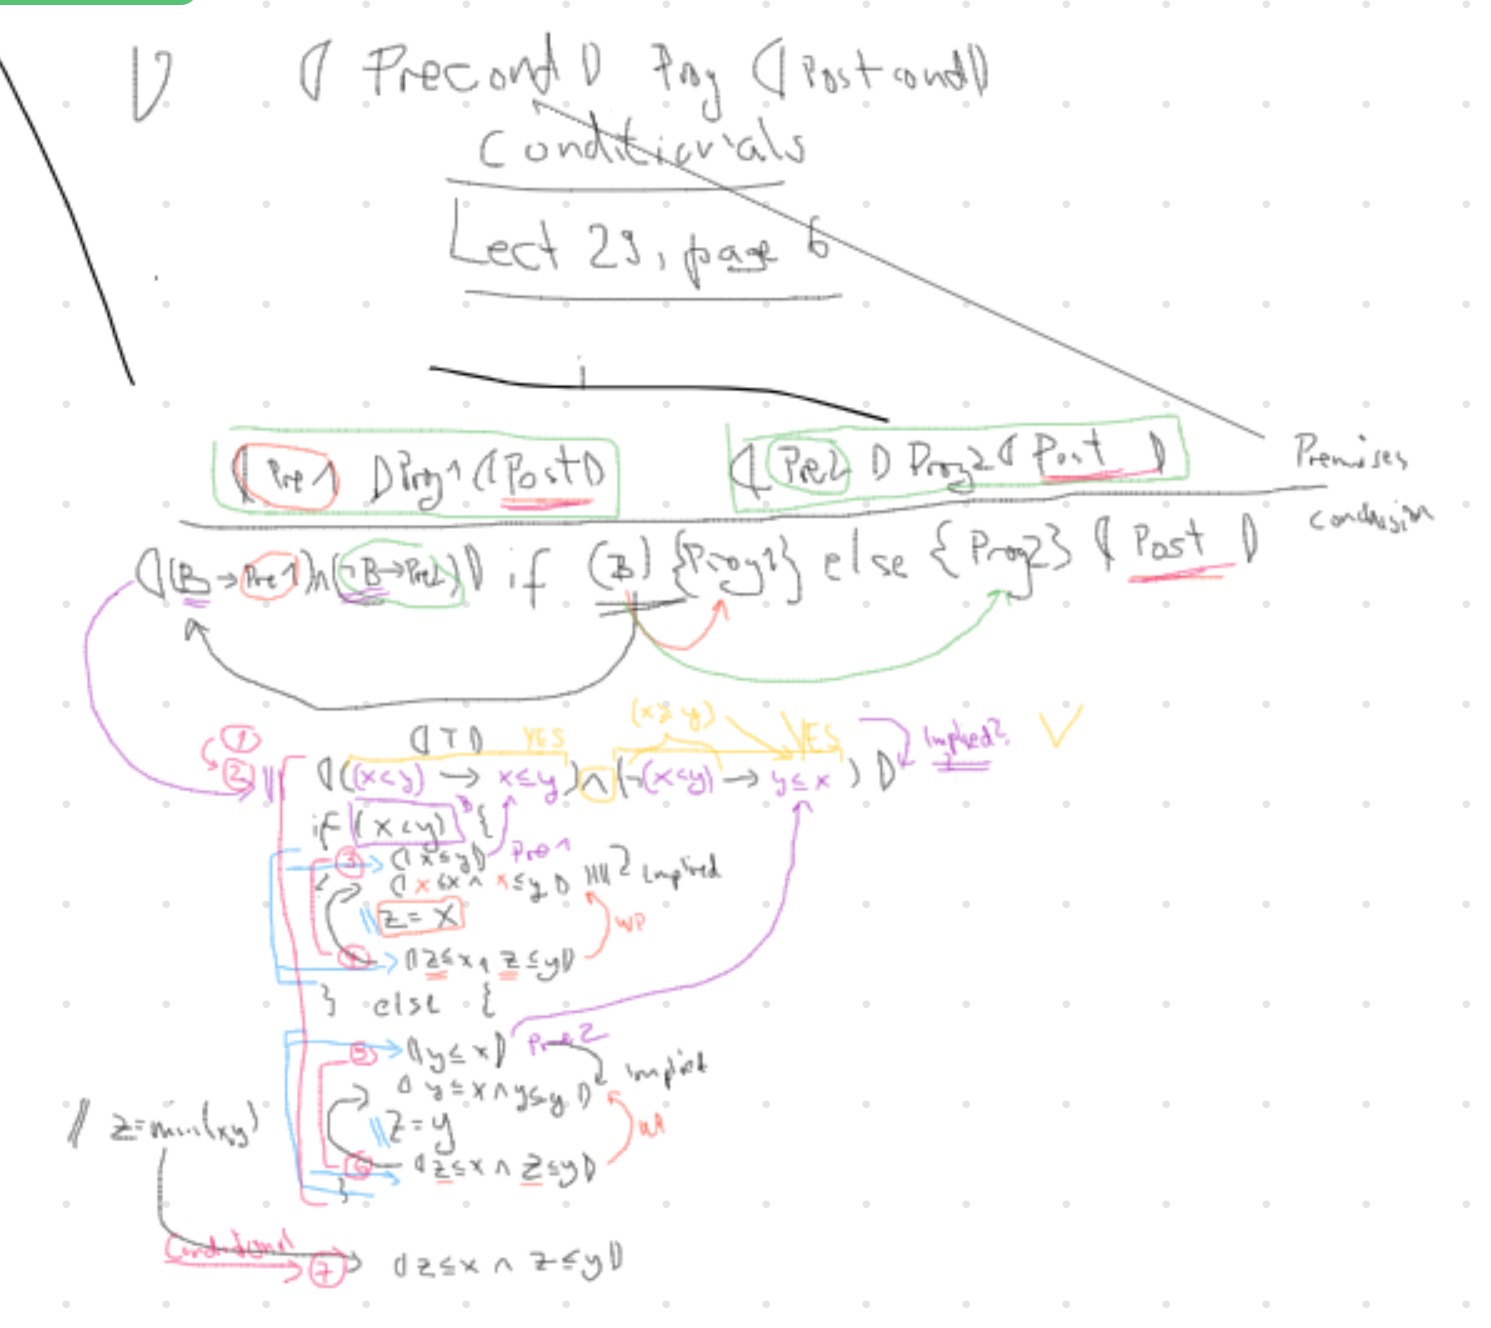 ⦇ Precond ⦈ Prog ⦇ Postcond ⦈
Conditionals
Lect 29, page 6
⦇ Pre1 ⦈ Prog1 ⦇ Post ⦈ ⦇ Pre2 ⦈ Prog2 ⦇ Post ⦈ Premises
conclusion
⦇ (B → Pre1) ∧ (¬B → Pre2) ⦈ if (B) {Prog1} else {Prog2} ⦇ Post ⦈
(x ≥ y)
① ⦇ T ⦈ YES YES Implied?
② ⦇ ((x<y) → x≤y) ∧ (¬(x<y) → y≤x) ⦈
if (x<y) { B
③ ⦇ x≤y ⦈ Pre1
⦇ x≤x ∧ x≤y ⦈ Implied
z = x WP
④ ⦇ z≤x ∧ z≤y ⦈
} else {
⑤ ⦇ y≤x ⦈ Pre2
⦇ y≤x ∧ y≤y ⦈ Implied
// z=min(x,y) z = y WP
⑥ ⦇ z≤x ∧ z≤y ⦈
}
Conditional ⑦ ⦇ z≤x ∧ z≤y ⦈